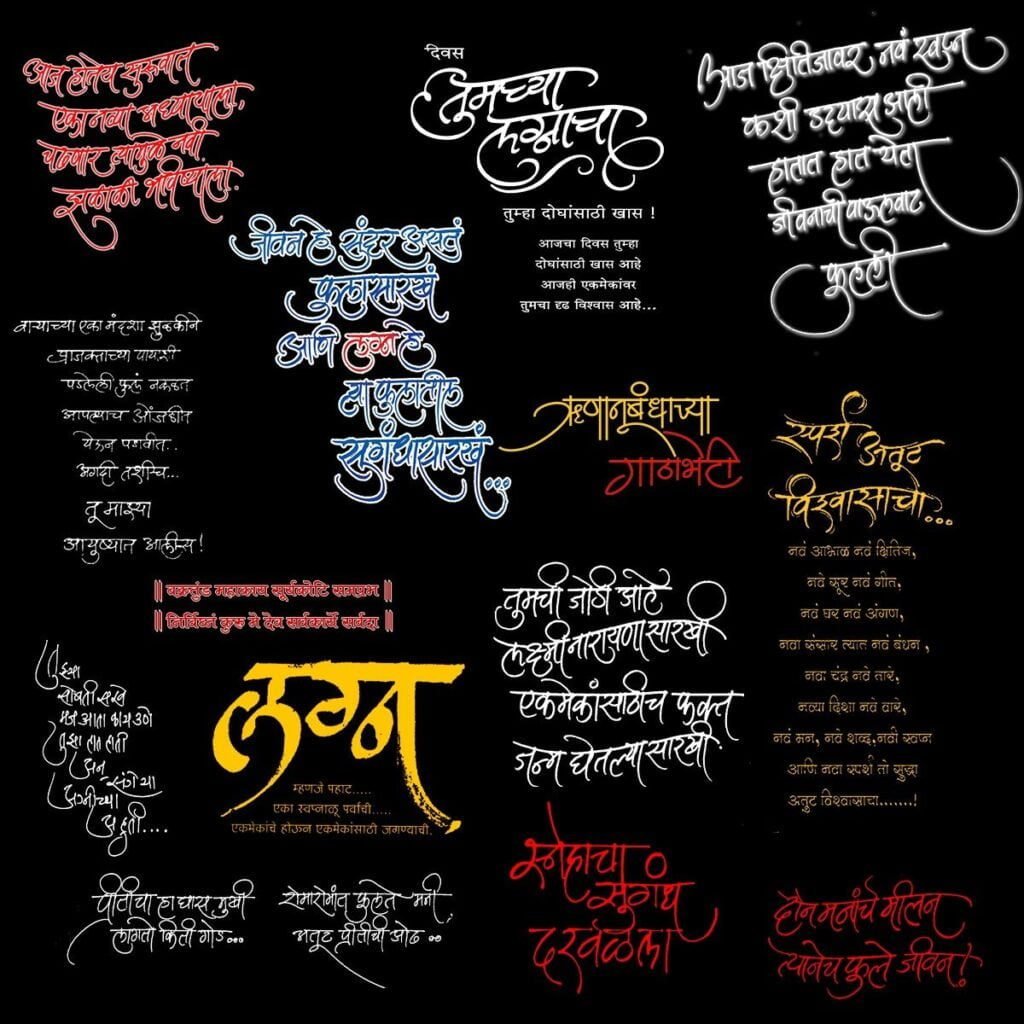 आज होतेय सुरुवात
एका नव्या अध्यायाला,
चढणार त्यामुळे नवी
झळाळी भविष्याला.
दिवस
तुमच्या
लग्नाचा
तुम्हा दोघांसाठी खास !
आजचा दिवस तुम्हा
दोघांसाठी खास आहे
आजही एकमेकांवर
तुमचा दृढ विश्वास आहे...
आज क्षितिजावर नवं स्वप्न
कशी उदयास आली
हातात हात येता
जीवनाची पाऊलवाट
फुलली
जीवन हे सुंदर असतं
फुलासारखं
आणि लग्न हे
त्या फुलातील
सुगंधासारखं...
वाऱ्याच्या एका मंदशा झुळकीने
प्राजक्ताच्या पायाशी
पडलेली फुलं नकळत
आपल्याच ओंजळीत
येऊन पडावीत..
अगदी तशीच...
तू माझ्या
आयुष्यात आलीस !
ऋणानूबंधाच्या
गाठीभेटी
स्पर्श अतूट
विश्वासाचा...
नवं आभाळ नवं क्षितिज,
नवे सूर नवं गीत,
नवं घर नवं अंगण,
नवा संसार त्यात नवं बंधन,
नवा चंद्र नवे तारे,
नव्या दिशा नवे वारे,
नवं मन, नवे शब्द,नवी स्वप्न
आणि नवा स्पर्श तो सुद्धा
अतुट विश्वासाचा.......!
|| वक्रतुंड महाकाय सूर्यकोटि समप्रभ ||
|| निर्विघ्नं कुरु मे देव सर्वकार्ये सर्वदा ||
तुमची जोडी आहे
लक्ष्मी नारायणा सारखी
एकमेकांसाठीच फक्त
जन्म घेतल्या सारखी.
तुझ्या
सोबती सखे
मज आता काय उणे
तुझा हात हाती
अन
संगे या
अग्नीच्या
आहुती....
लग्न
म्हणजे पहाट.....
एका स्वप्नाळू पर्वाची.....
एकमेकांचे होऊन एकमेकांसाठी जगण्याची.
प्रीतीचा हा घास मुखी
लागतो किती गोड...
रोमारोमांत फुलते मनी
अतूट प्रीतीची ओढ ..
स्नेहाचा
सुगंध
दरवळला
दोन मनांचे मीलन
त्यानेच फुले जीवन!